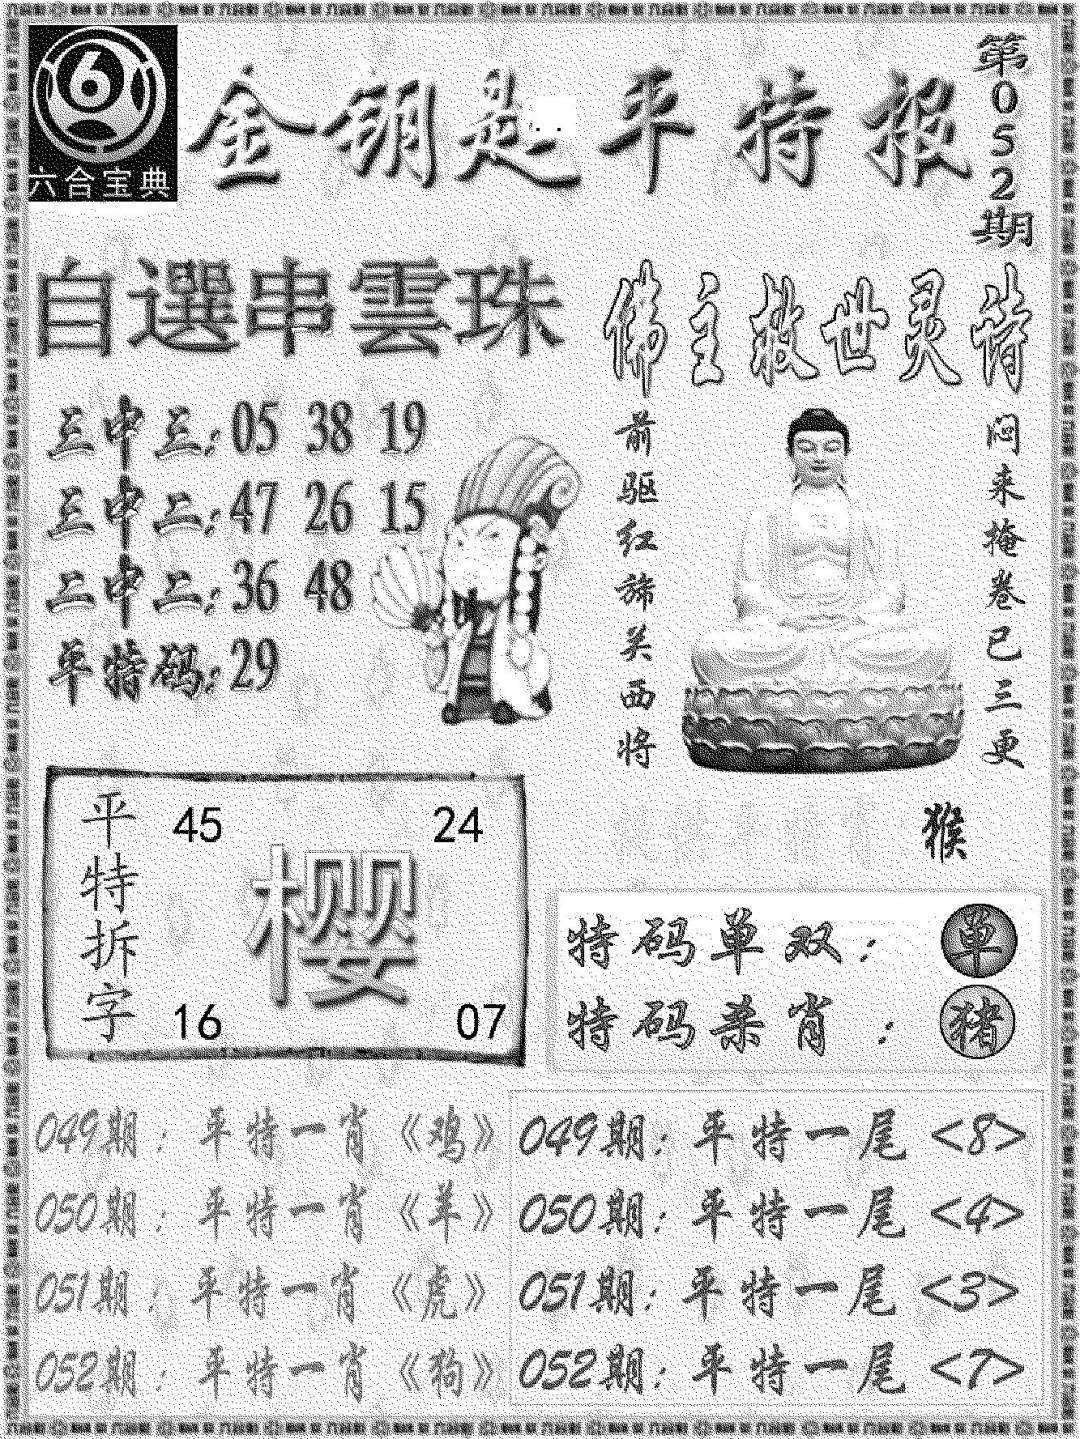 六合宝典
金钥匙..平特报
第052期
自選串雲珠
三中三:05 38 19
三中二:47 26 15
二中二:36 48
平特码:29
佛主救世灵诗
闷来掩卷已三更
前驱红旆关西将
猴
平特拆字
45 24
樱
16 07
特码单双:单
特码杀肖:猪
049期:平特一肖《鸡》
050期:平特一肖《羊》
051期:平特一肖《虎》
052期:平特一肖《狗》
049期:平特一尾<8>
050期:平特一尾<4>
051期:平特一尾<3>
052期:平特一尾<7>